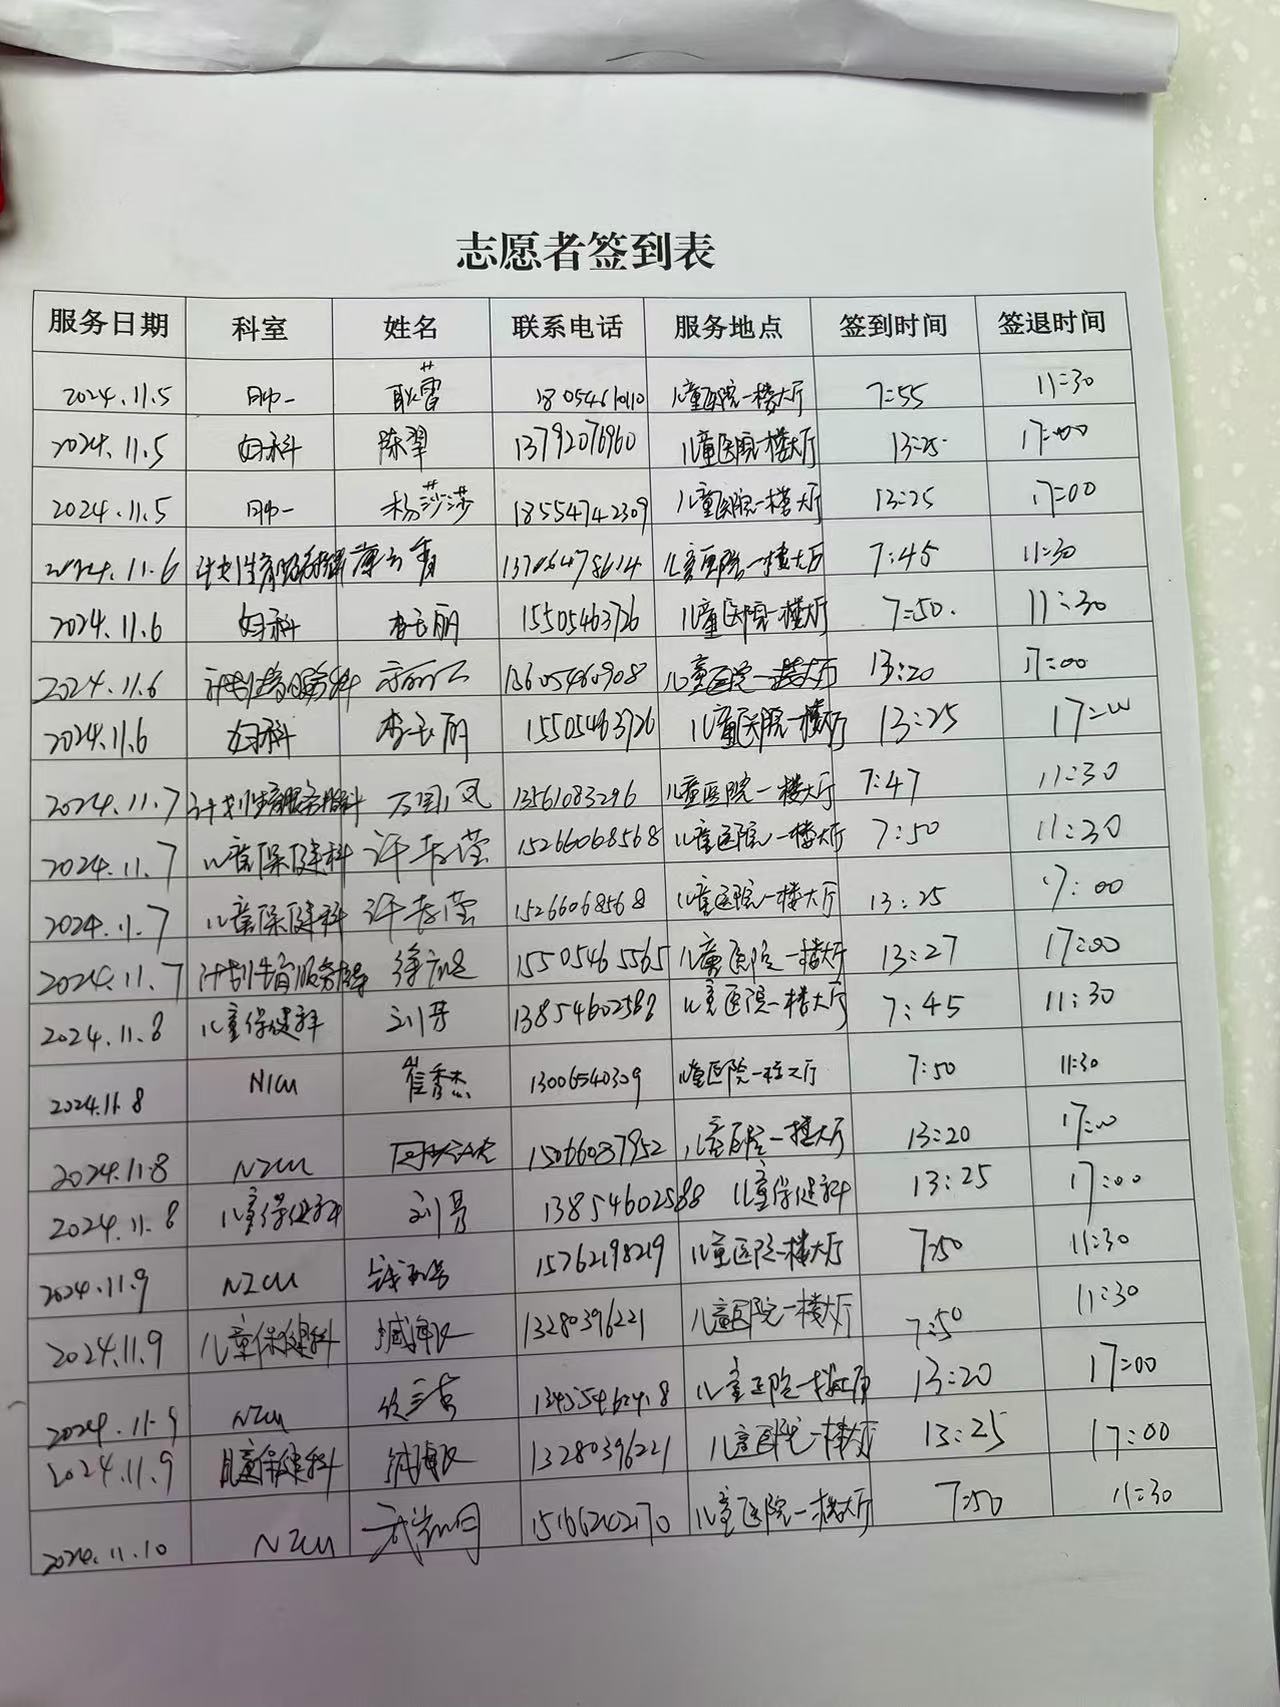 志愿者签到表
服务日期 科室 姓名 联系电话 服务地点 签到时间 签退时间
2024.11.5 肿一 耿蕾 18054610110 儿童医院一楼大厅 7:55 11:30
2024.11.5 妇科 陈翠 13792076960 儿童医院一楼大厅 13:25 17:00
2024.11.5 肿一 杨莎莎 18554742309 儿童医院一楼大厅 13:25 17:00
2024.11.6 13706478614 儿童医院一楼大厅 7:45 11:30
2024.11.6 妇科 李玉丽 15505463726 儿童医院一楼大厅 7:50. 11:30
2024.11.6 13605460908 儿童医院一楼大厅 13:20 17:00
2024.11.6 妇科 李玉丽 15505463726 儿童医院一楼大厅 13:25 17:00
2024.11.7 13561083296 儿童医院一楼大厅 7:47 11:30
2024.11.7 儿童保健科 许春莹 15266068568 儿童医院一楼大厅 7:50 11:30
2024.11.7 儿童保健科 许春莹 15266068568 儿童医院一楼大厅 13:25 17:00
2024.11.7 计划生育服务指导 15505465565 儿童医院一楼大厅 13:27 17:00
2024.11.8 儿童保健科 刘芳 13854602588 儿童医院一楼大厅 7:45 11:30
2024.11.8 NICU 崔秀杰 13006540309 儿童医院一楼大厅 7:50 11:30
2024.11.8 NICU 15066037952 儿童医院一楼大厅 13:20 17:00
2024.11.8 儿童保健科 刘芳 13854602588 儿童保健科 13:25 17:00
2024.11.9 NICU 15762198219 儿童医院一楼大厅 7:50 11:30
2024.11.9 儿童保健科 13280396221 儿童医院一楼大厅 7:50 11:30
2024.11.9 NICU 儿童医院一楼大厅 13:20 17:00
2024.11.9 儿童保健科 13280396221 儿童医院一楼大厅 13:25 17:00
2024.11.10 NICU 儿童医院一楼大厅 7:50 11:30